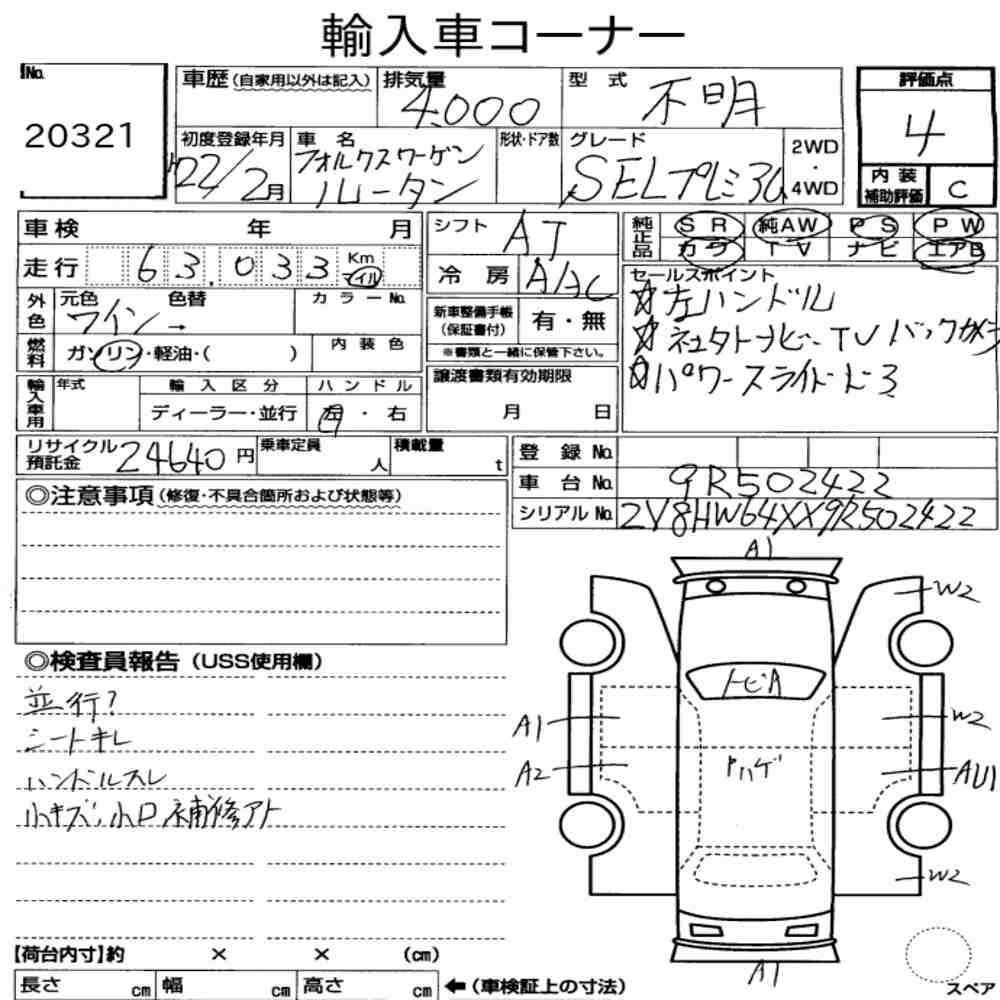 輸入車コーナー
No.
20321
車歴(自家用以外は記入)
排気量
4,000
型式
不明
評価点
4
初度登録年月
22/2月
車名
フォルクスワーゲン
ルータン
形状・ドア数
グレード
SELプレミアム
2WD
・
4WD
内装
補助評価
C
車検 年 月
走行 63,033 Km マイル
外色
元色 色替
ワイン→
カラーNo.
燃料
ガソリン・軽油・( )
内装色
輸入車用
年式
輸入区分
ディーラー・並行
ハンドル
左・右
シフト
AT
冷房
A/AC
新車整備手帳
(保証書付)
有・無
※書類と一緒に保管下さい。
譲渡書類有効期限
月 日
純正品
SR 純AW PS PW
カワ TV ナビ エアB
セールスポイント
☆左ハンドル
☆社外ナビ TV バックカメラ
☆パワースライドドア
リサイクル
預託金
24640円
乗車定員
人
積載量
t
登録No.
車台No.
9R502422
シリアルNo.
2V8HW64XX9R502422
◎注意事項(修復・不具合箇所および状態等)
◎検査員報告(USS使用欄)
並行?
シートキレ
ハンドルスレ
小キズ、小凹 補修アト
A1
W2
トビA
A1
W2
A2
ハゲ
AU1
W2
A1
スペア
【荷台内寸】約 × × (cm)
長さ cm 幅 cm 高さ cm
←(車検証上の寸法)